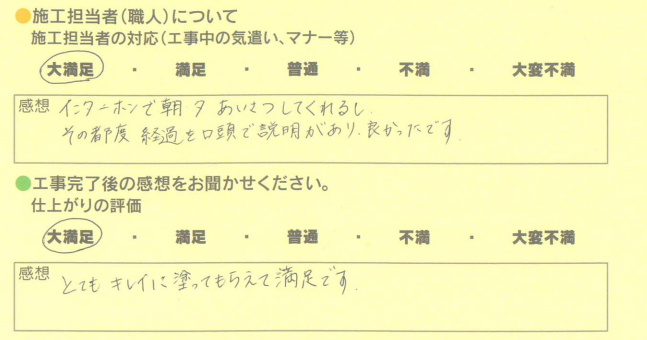 ●施工担当者(職人)について
施工担当者の対応(工事中の気遣い、マナー等)
大満足 ・ 満足 ・ 普通 ・ 不満 ・ 大変不満
感想 インターホンで朝夕あいさつしてくれるし、
その都度 経過を口頭で説明があり、良かったです.
●工事完了後の感想をお聞かせください。
仕上がりの評価
大満足 ・ 満足 ・ 普通 ・ 不満 ・ 大変不満
感想 とても キレイに塗ってもらえて満足です.